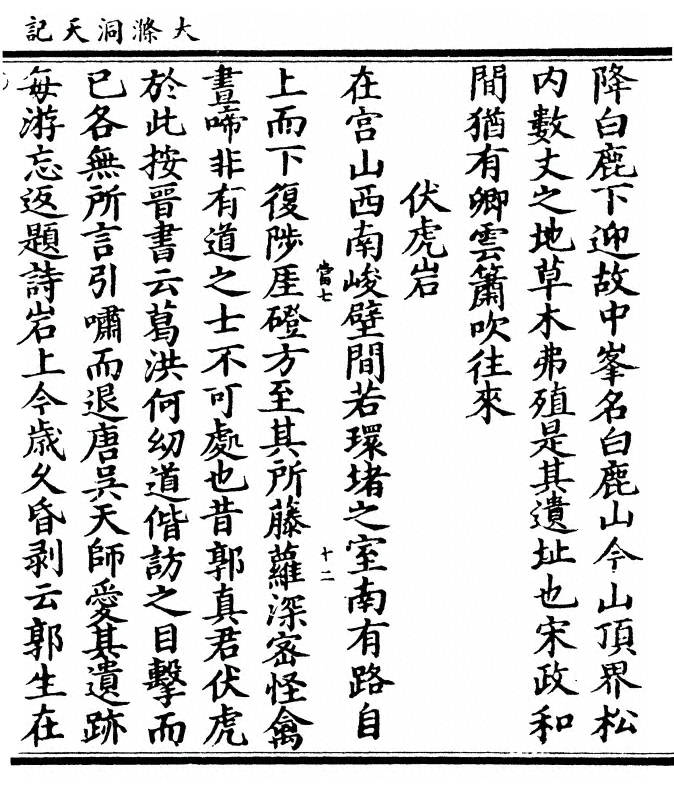 大滌洞天記
降白鹿下迎故中峯名白鹿山今山頂界松
内數丈之地草木弗殖是其遺址也宋政和
間猶有卿雲簫吹往來
伏虎岩
在宫山西南峻壁間若環堵之室南有路自
當七
十二
上而下復陟厓磴方至其所藤蘿深宻怪禽
晝啼非有道之士不可處也昔郭真君伏虎
於此按晉書云葛洪何幼道偕訪之目擊而
已各無所言引嘯而退唐吳天師愛其遺跡
每游忘返題詩岩上今歲久昏剥云郭生在